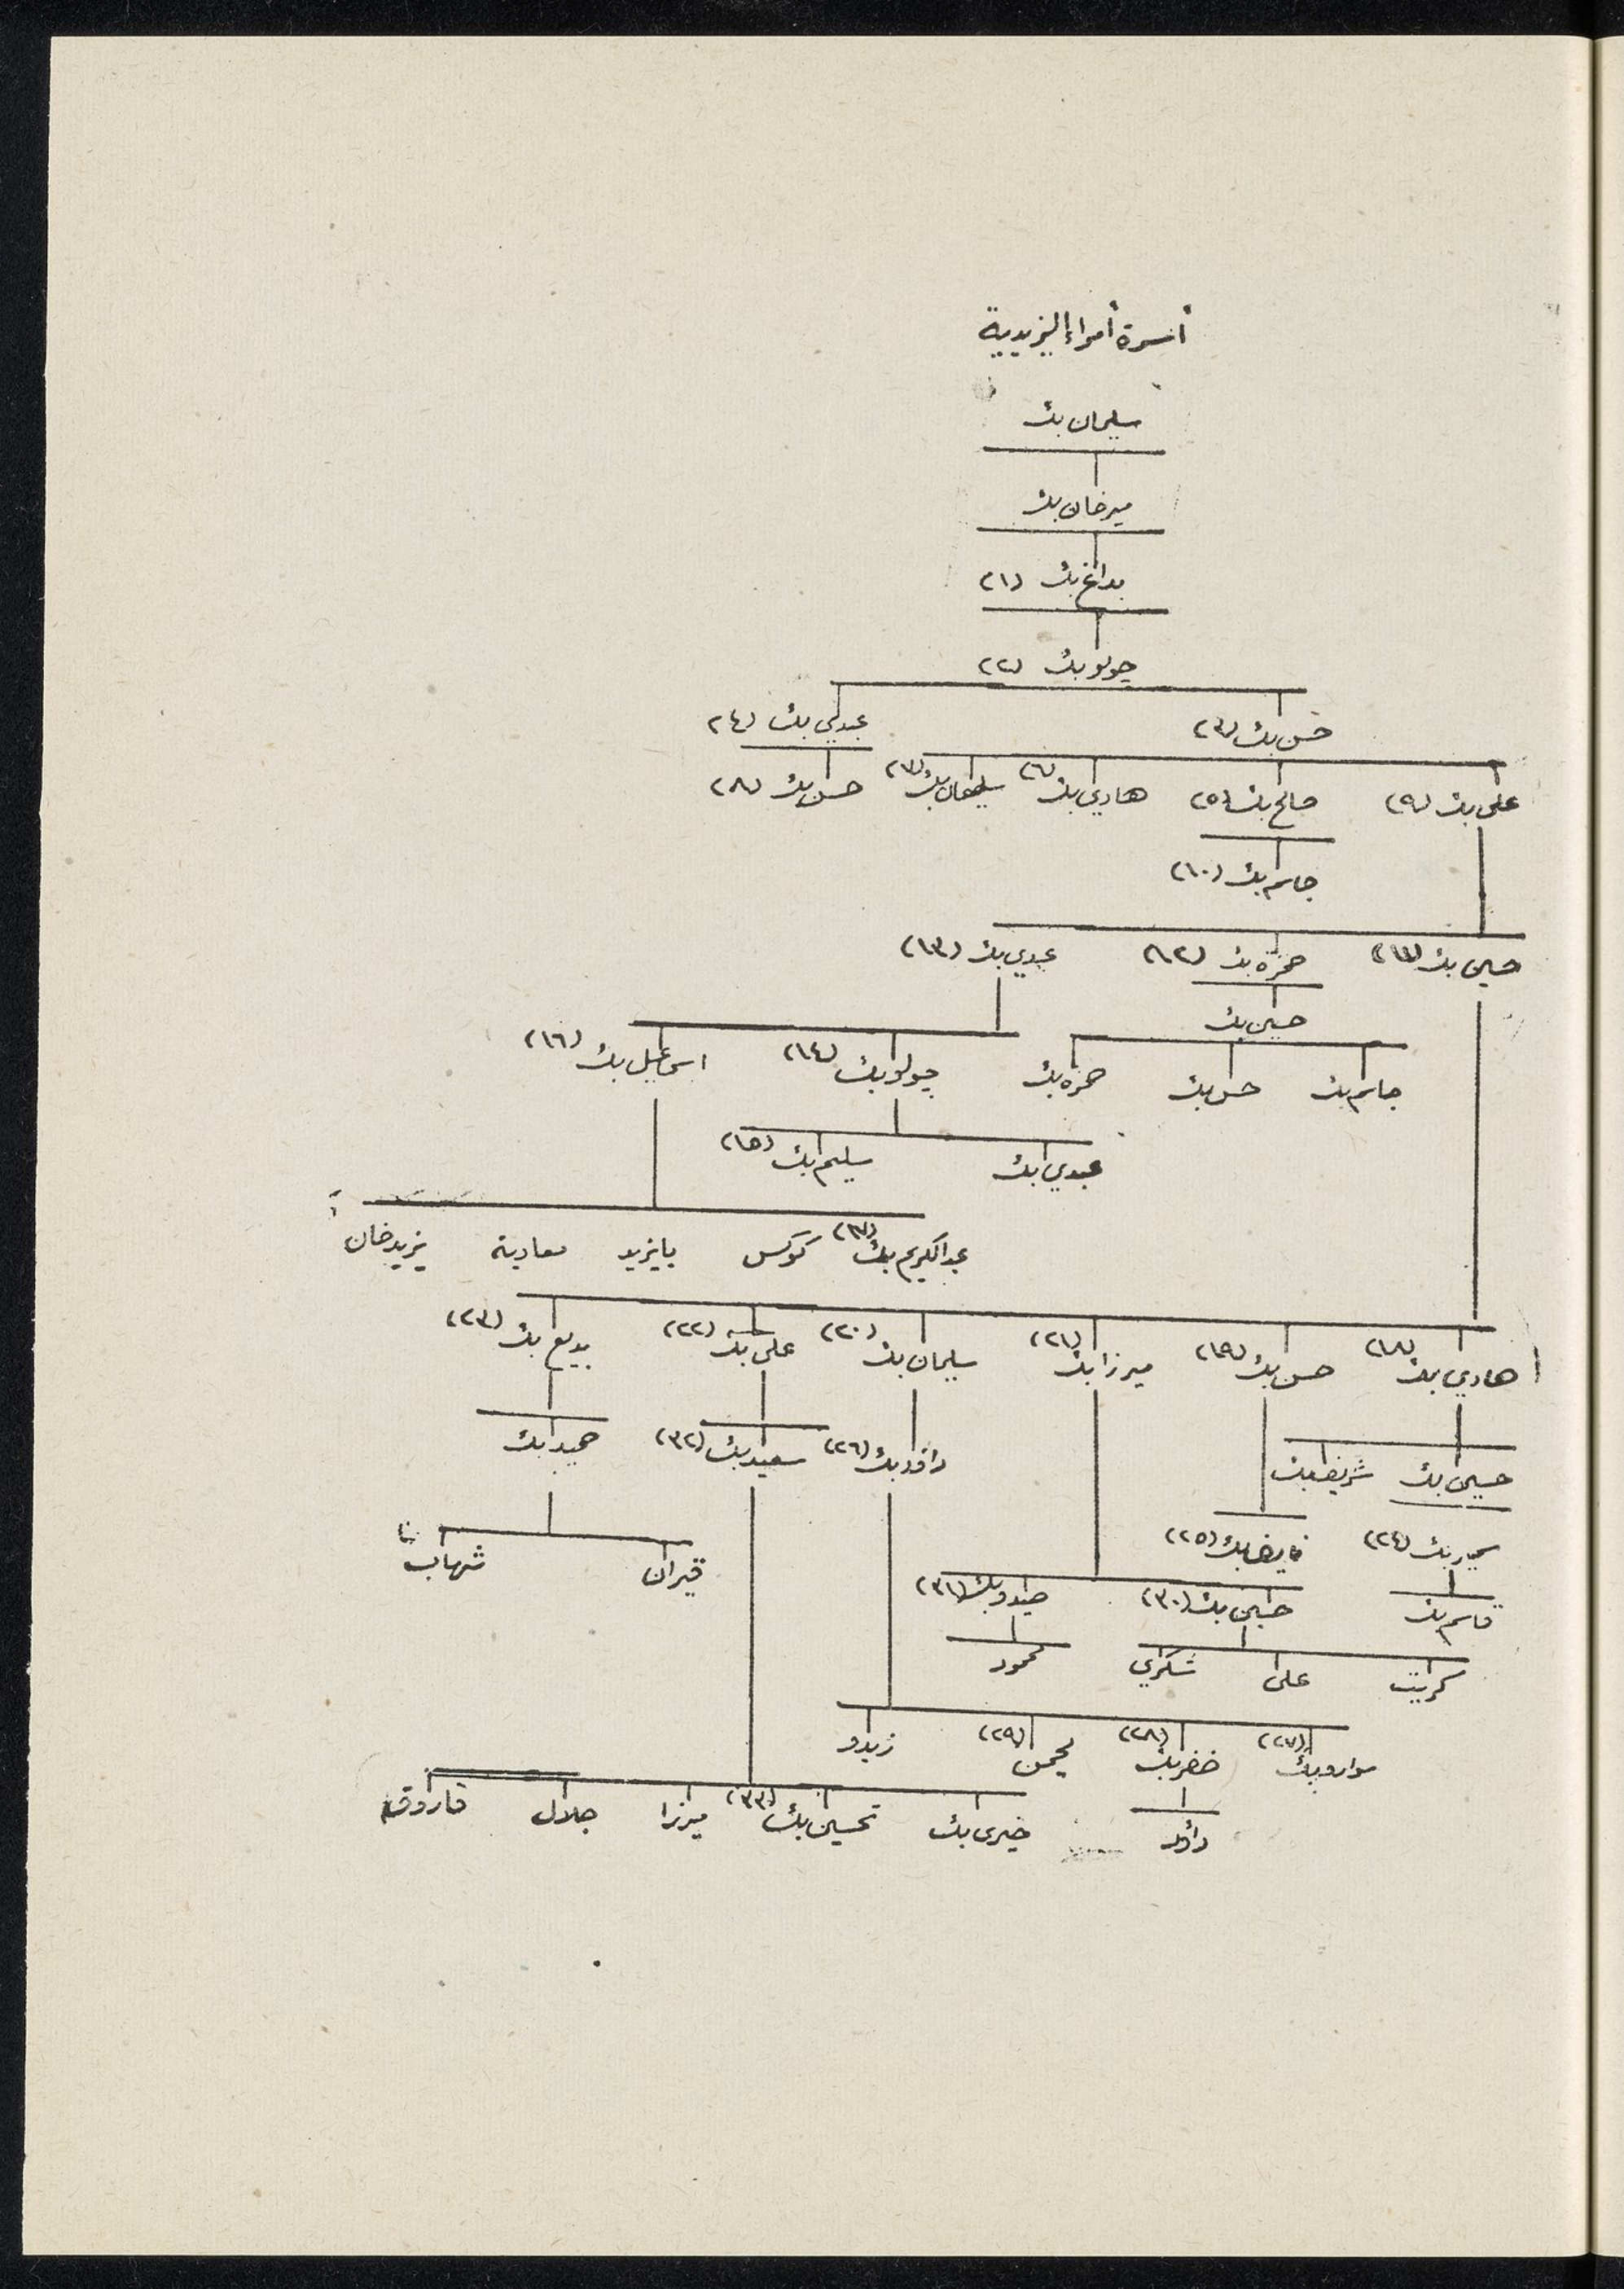 أسرة أمراء اليزيدية
سليمان بك
ميرخان بك
بداغ بك (١)
جولو بك (٢)
حسن بك (٣) عبدلي بك (٤)
علي بك (٩) صالح بك (٥) هادي بك (٦) سليمان بك (٧) حسن بك (٨)
جاسم بك (١٠)
حسين بك (١١) حمزه بك (١٢) عبدي بك (١٣)
حسين بك
جاسم بك حسن بك حمزه بك جولو بك (١٤) اسماعيل بك (١٦)
عبدي بك سليم بك (١٥)
عبدالكريم بك (١٧) كوركس بايزيد معاوية يزيدخان
هادي بك (١٨) حسن بك (١٩) ميرزا بك (٢١) سليمان بك (٢٠) علي بك (٢٢) بديع بك (٢٣)
حسين بك شريف بك داود بك (٢٦) سعيد بك (٣٢) حميد بك
بك (٢٤) نايف بك (٢٥) قيران شهاب
قاسم بك حسين بك (٣٠) صيدو بك (٣١)
علي شكري محمود
بك (٢٧) خضر بك (٢٨) (٢٩) زيدو
داؤد خيري بك تحسين بك (٣٣) ميرزا جلال فاروق